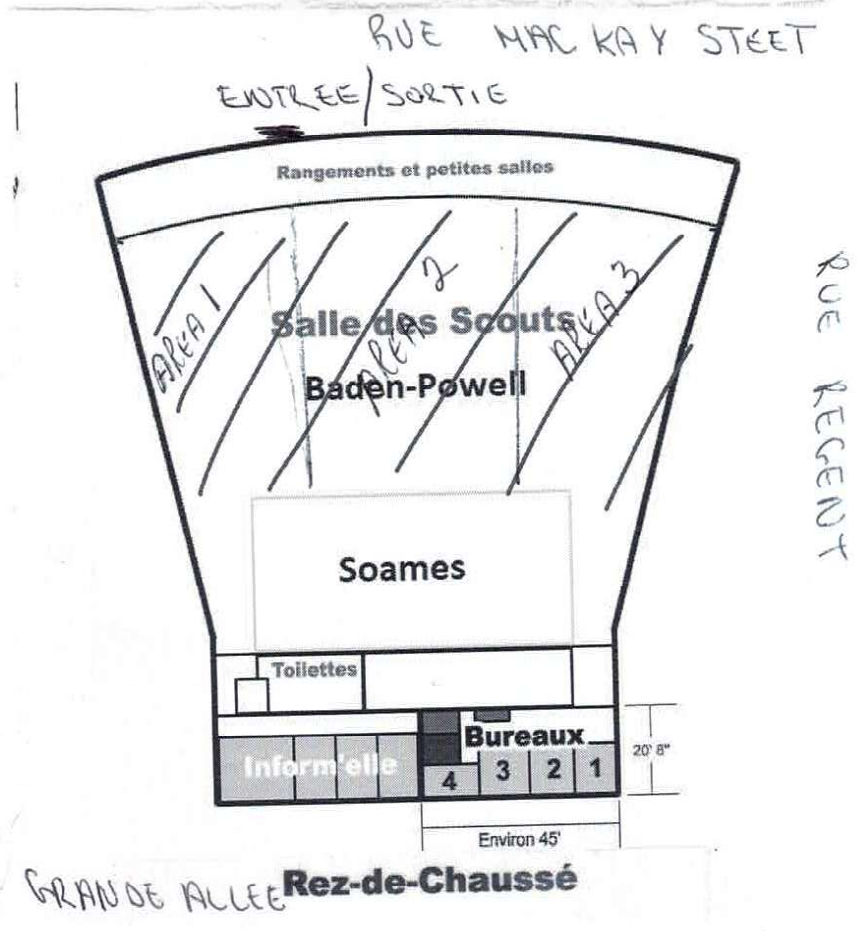 RUE MAC KAY STEET
ENTREE/SORTIE
Rangements et petites salles
AREA 1
AREA 2
AREA 3
Salle des Scouts
Baden-Powell
RUE REGENT
Soames
Toilettes
Bureaux
Inform'elle
4 3 2 1
20' 8"
Environ 45'
GRANDE ALLEE
Rez-de-Chaussé